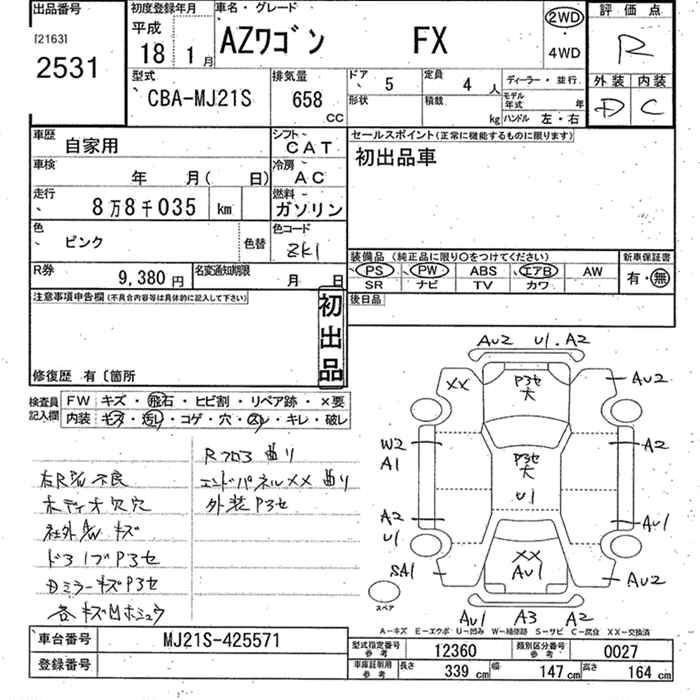 出品番号
[2163]
2531
初度登録年月
平成
18 1 月
車名・グレード
AZワゴン FX
2WD
4WD
評価点
R
外装 内装
D C
型式
CBA-MJ21S
排気量
658
CC
ドア
5
定員
4 人
ディーラー・並行
形状
積載
kg
モデル年式 年
ハンドル 左・右
車歴
自家用
シフト
C A T
セールスポイント(正常に機能するものに限ります)
初出品車
車検
年 月( 日)
冷房
A C
走行
8万8千035 km
燃料
ガソリン
色
ピンク
色替
色コード
ZK1
装備品 (純正品に限り○をつけてください)
PS PW ABS エアB AW
SR ナビ TV カワ
新車保証書
有・無
R券
9,380 円
名変通知期限
月 日
後日品
注意事項申告欄(不具合内容等は具体的に記入して下さい)
初出品
修復歴 有〔箇所
検査員記入欄
FW キズ・飛石・ヒビ割・リペア跡・×要
内装 キズ・汚レ・コゲ・穴・スレ・キレ・破レ
Rフロア曲り
エンドパネルXX曲り
外装P3セ
右RSW不良
オーディオ欠穴
社外AWキズ
ドアノブP3セ
DミラーキズP3セ
各キズ凹ホシュウ
AU2 U1.A2
XX
P3セ
大
AU2
W2
A1
A2
P3セ
大
U1
A2
U1
AU1
SA1
XX
AU1
AU2
スペア
AU1 A3 A2
A-キズ E-エクボ U-凹み W-補修跡 S-サビ C-腐食 XX-交換済
車台番号
MJ21S-425571
登録番号
型式指定番号参考
12360
類別区分番号参考
0027
車庫証明用参考
長さ 339 cm 幅 147 cm 高さ 164 cm